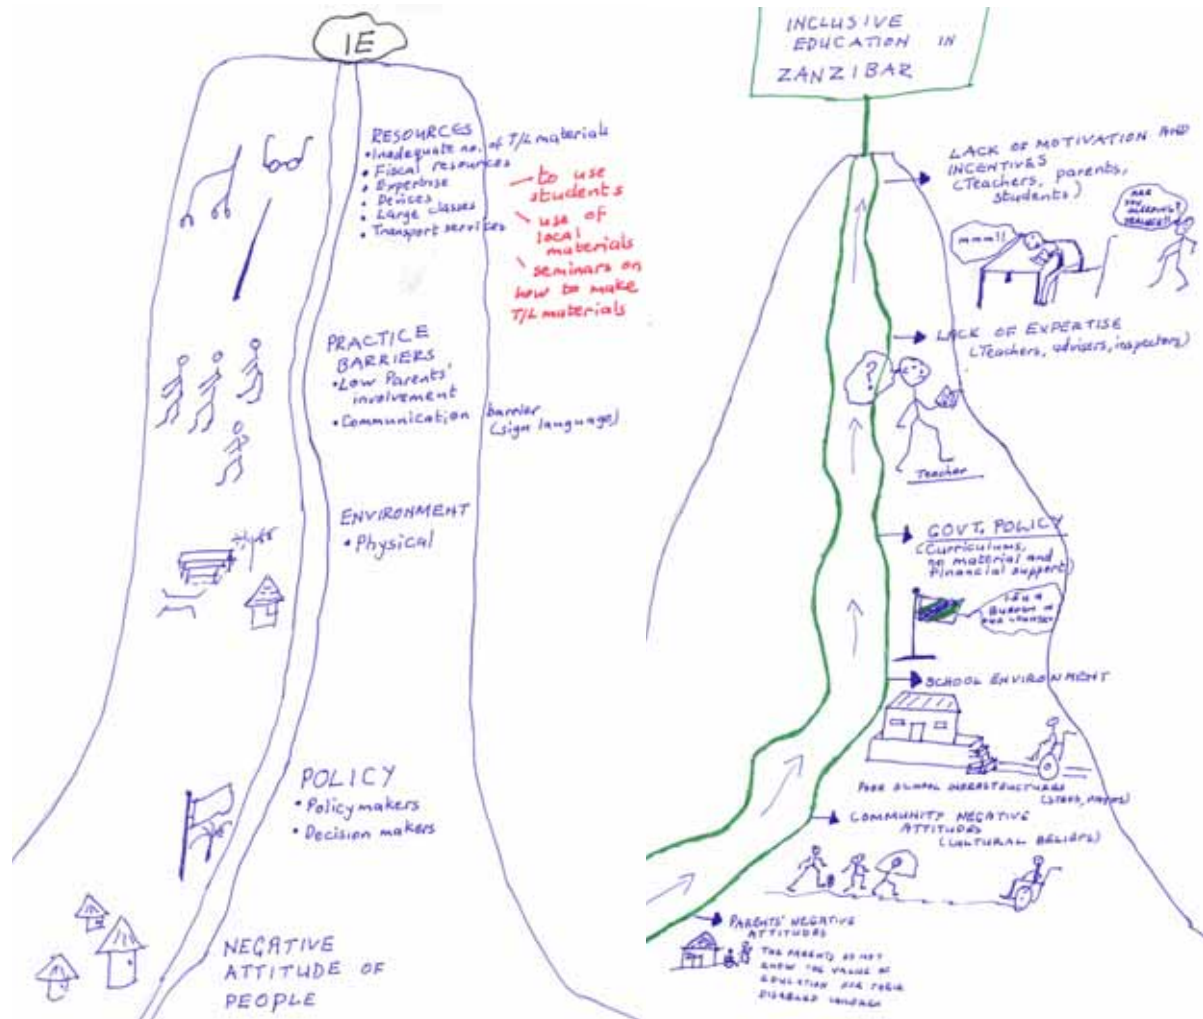 IE
RESOURCES
• Inadequate no. of T/L materials
• Fiscal resources
• Expertise
• Devices
• Large classes
• Transport services
— to use
students
\ use of
local
materials
\ seminars on
how to make
T/L materials
PRACTICE
BARRIERS
• Low Parents'
involvement
• Communication barrier
(sign language)
ENVIRONMENT
• Physical
POLICY
• Policy makers
• Decision makers
NEGATIVE
ATTITUDE OF
PEOPLE
INCLUSIVE
EDUCATION IN
ZANZIBAR
LACK OF MOTIVATION AND
INCENTIVES
(Teachers, parents,
students)
ARE
YOU
SLEEPING?
mmm!!
LACK OF EXPERTISE
(Teachers, advisers, inspectors)
?
Teacher
GOVT. POLICY
(Curriculums,
on material and
financial support)
I.E IS A
BURDEN IN
OUR COUNTRY
SCHOOL ENVIRONMENT
POOR SCHOOL INFRASTRUCTURES
COMMUNITY NEGATIVE
ATTITUDES
(CULTURAL BELIEFS)
PARENTS' NEGATIVE
ATTITUDES
THE PARENTS DO NOT
KNOW THE VALUE OF
EDUCATION FOR THEIR
DISABLED CHILDREN